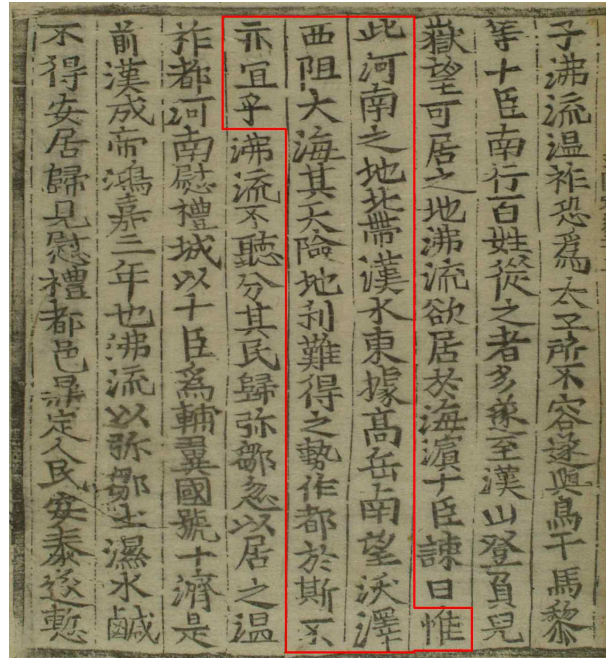 子沸流温祚恐爲太子所不容遂與烏干馬黎
等十臣南行百姓從之者多遂至漢山登負兒
嶽望可居之地沸流欲居於海濱十臣諫曰惟
此河南之地北帶漢水東據髙岳南望沃澤
西阻大海其天險地利難得之勢作都於斯不
亦宜乎沸流不聽分其民歸弥鄒忽以居之温
祚都河南慰禮城以十臣爲輔翼國號十濟是
前漢成帝鴻嘉三年也沸流以弥鄒土濕水鹹
不得安居歸見慰禮都邑鼎定人民安泰遂慙